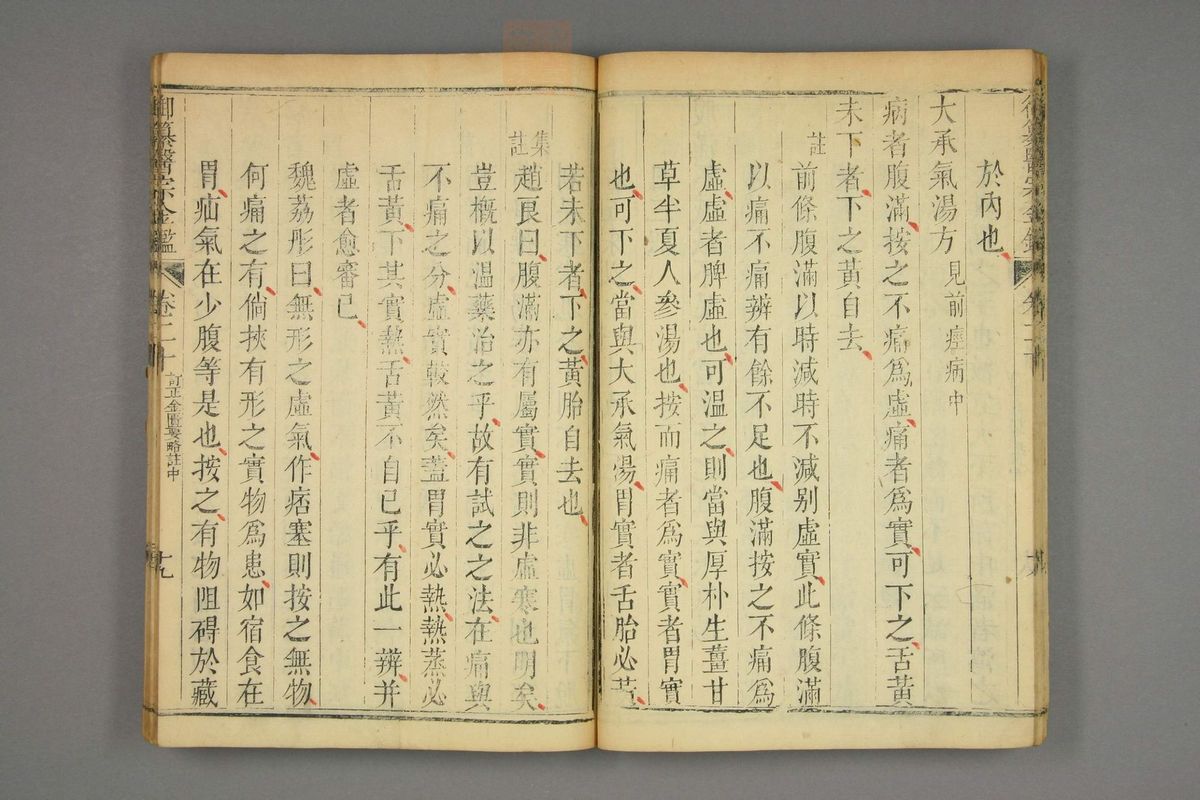 於內也
大承氣湯方 見前痙病中
病者腹滿按之不痛爲虛痛者爲實可下之舌黃
未下者下之黃自去
註
前條腹滿以時減時不減别虛實此條腹滿
以痛不痛辨有餘不足也腹滿按之不痛爲
虛虛者脾虛也可温之則當與厚朴生薑甘
草半夏人參湯也按而痛者爲實實者胃實
也可下之當與大承氣湯胃實者舌胎必黃
若未下者下之黃胎自去也
集註
趙良曰腹滿亦有屬實實則非虛寒也明矣
豈槪以温藥治之乎故有試之之法在痛與
不痛之分虛實較然矣蓋胃實必熱熱蒸必
舌黃下其實熱舌黃不自已乎有此一辨并
虛者愈審已
魏荔彤曰無形之虛氣作痞塞則按之無物
何痛之有倘挾有形之實物爲患如宿食在
胃疝氣在少腹等是也按之有物阻碍於藏
御纂醫宗金鑑
卷二十
訂正金匱要略註中
十九